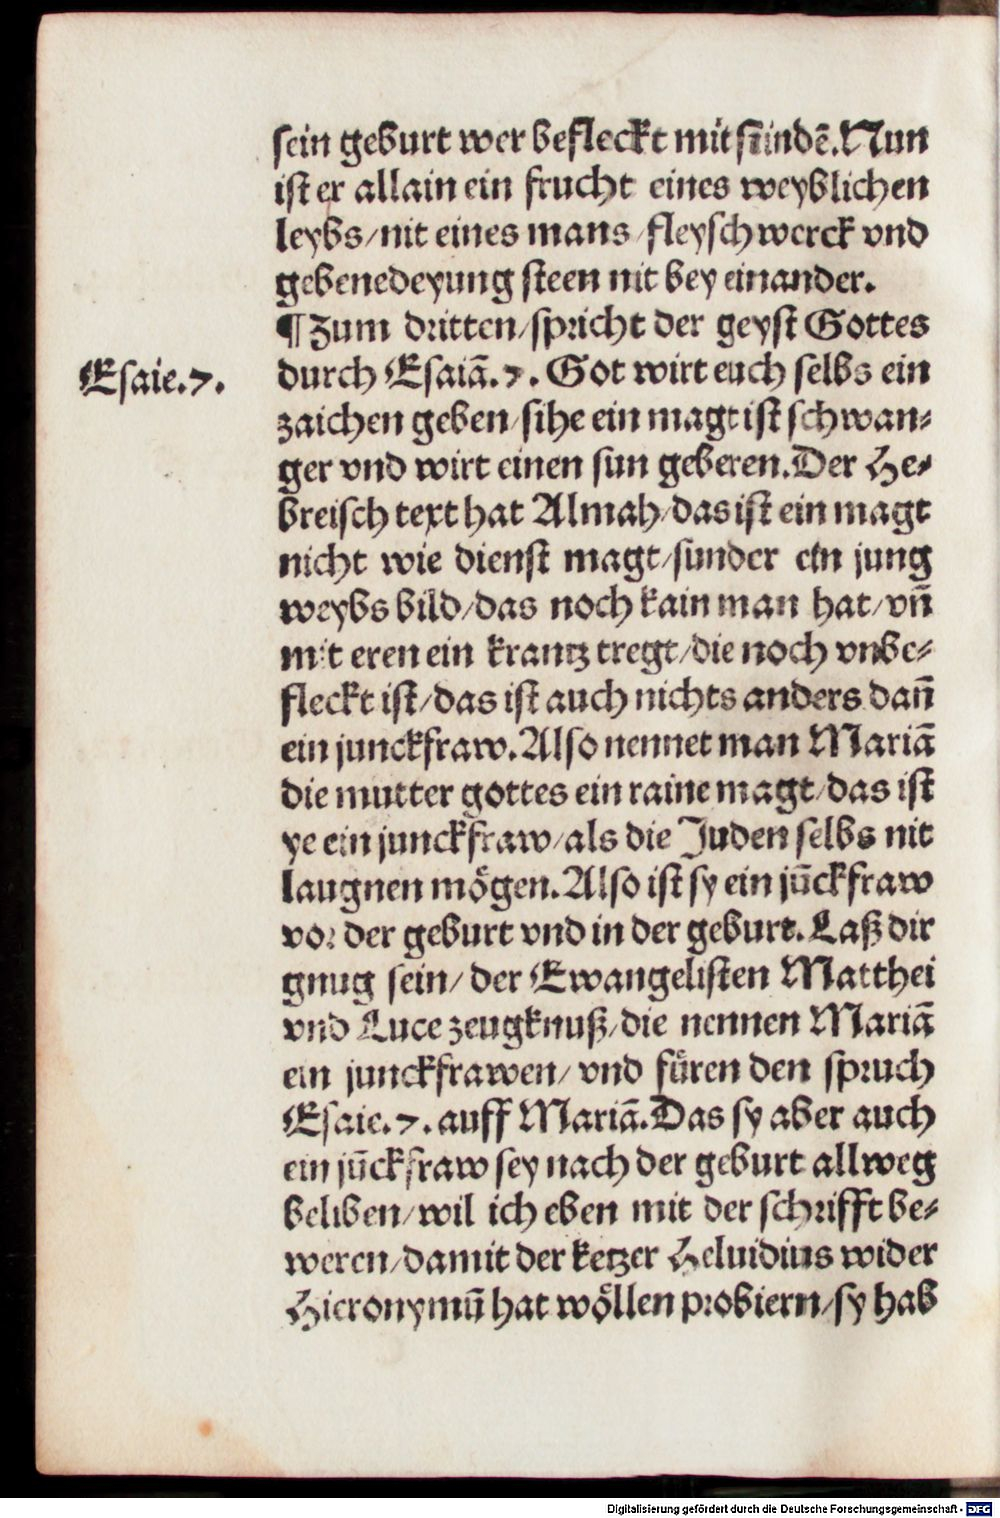 sein geburt wer befleckt mit sündẽ. Nun
ist er allain ein frucht eines weyblichen
leybs/nit eines mans/fleysch werck vnd
gebenedeyung steen nit bey einander.
¶Zum dritten/spricht der geyst Gottes
Esaie.7.
durch Esaiã.7. Got wirt euch selbs ein
zaichen geben/sihe ein magt ist schwan⸗
ger vnd wirt einen sun geberen. Der He⸗
breisch text hat Almah/das ist ein magt
nicht wie dienst magt/sunder ein jung
weybs bild/das noch kain man hat/vñ
mit eren ein krantz tregt/die noch vnbe⸗
fleckt ist/das ist auch nichts anders dañ
ein junckfraw. Also nennet man Mariã
die mutter gottes ein raine magt/das ist
ye ein junckfraw/als die Juden selbs nit
laugnen mögen. Also ist sy ein jūckfraw
vor der geburt vnd in der geburt. Laß dir
gnug sein/der Ewangelisten Matthei
vnd Luce zeugknuß/die nennen Mariã
ein junckfrawen/vnd füren den spruch
Esaie.7. auff Mariã. Das sy aber auch
ein jūckfraw sey nach der geburt allweg
beliben/wil ich eben mit der schrifft be⸗
weren/damit der ketzer Heluidius wider
Hieronymū hat wöllen probiern/sy hab
Digitalisierung gefördert durch die Deutsche Forschungsgemeinschaft - DFG